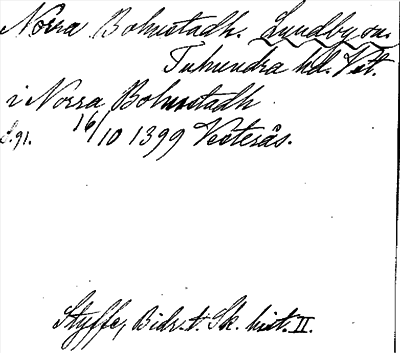 Norra Bolmstadh. Lundby sn.
Tuhundra hd. Vstl.
i Norra Bolmstadh
S. 91. 16/10 1399 Vesterås.
Styffe, Bidr. t. Sk. hist. II.